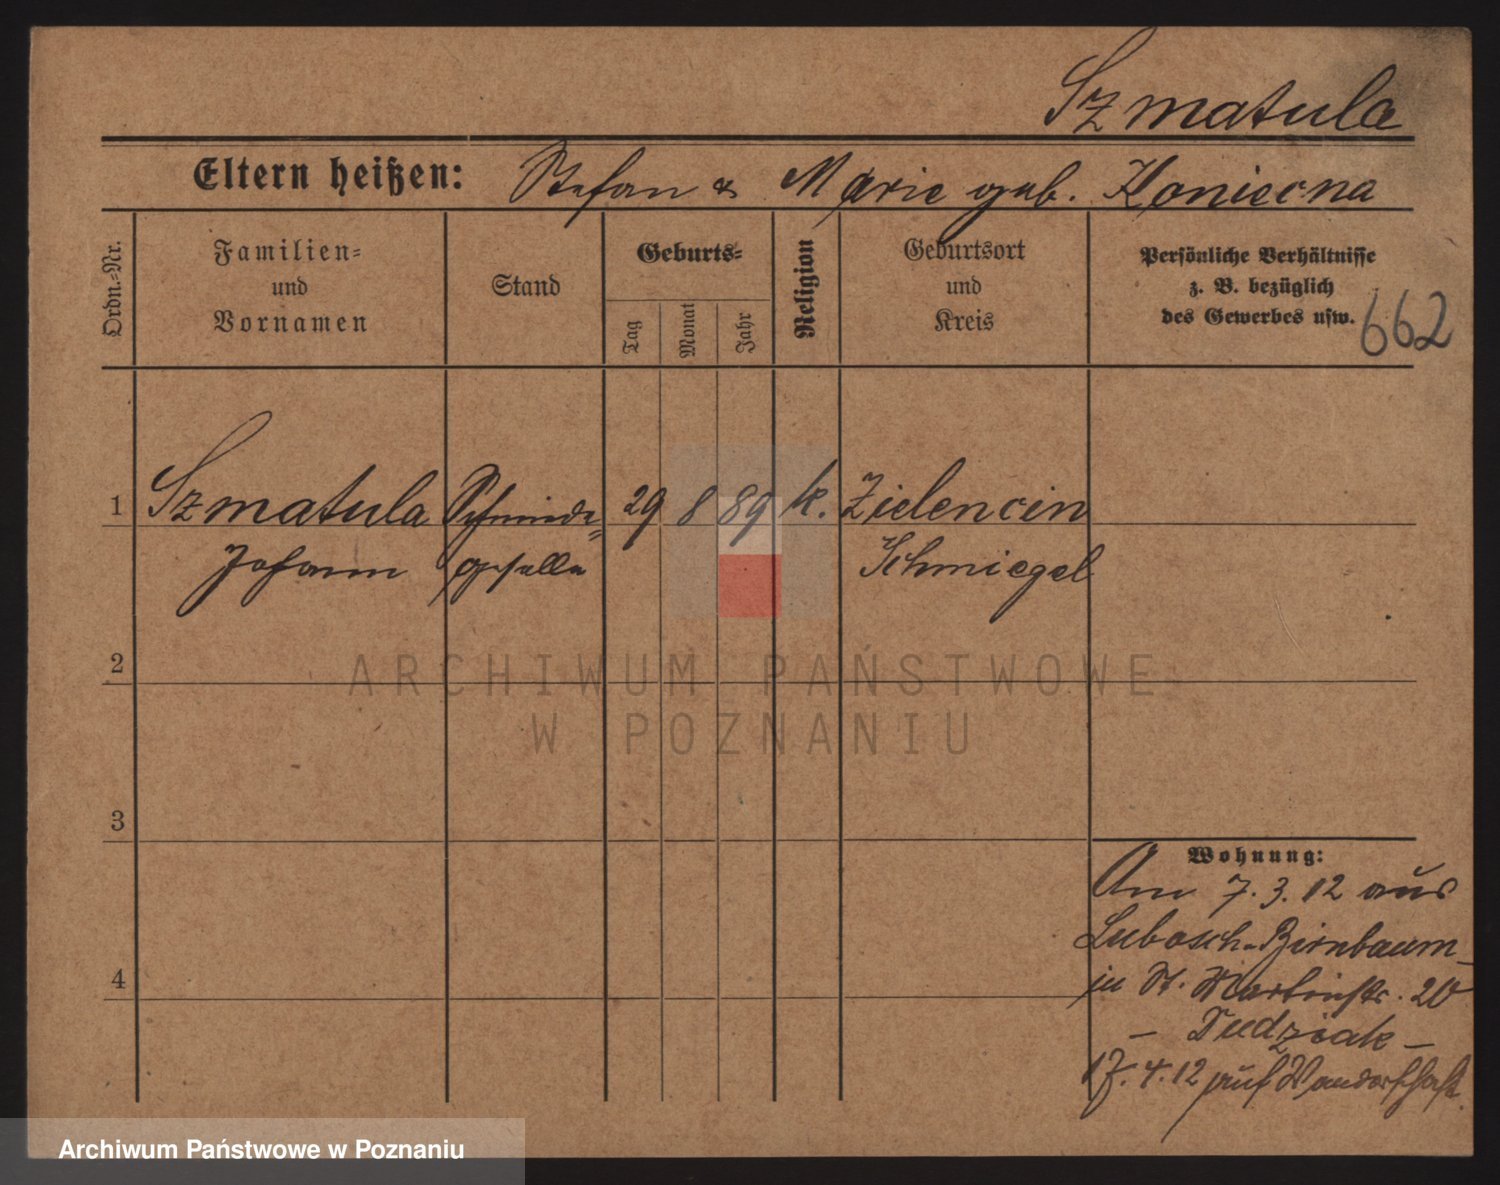 Szmatula
Eltern heißen: Stefan & Marie geb. Koniecna
Ordn.-Nr.
Familien-
und
Vornamen
Stand
Geburts-
Tag
Monat
Jahr
Religion
Geburtsort
und
Kreis
Persönliche Verhältnisse
z. B. bezüglich
des Gewerbes usw.
662
1 Szmatula Schmiede= 29 8 89 k. Zielencin
Johann geselle Schmiegel
2
ARCHIWUM PAŃSTWOWE
W POZNANIU
3
Wohnung:
Am 7.3.12 aus
Lubosch-Birnbaum
in St. Martinstr. 20
– Dudziak –
17.4.12 auf Wanderschaft.
4
Archiwum Państwowe w Poznaniu